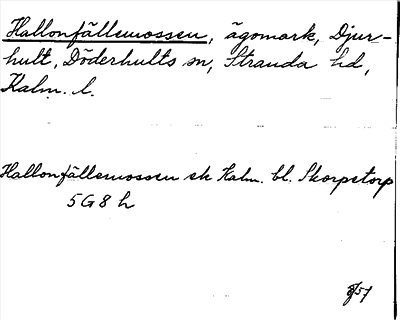 Hallonfällemossen, ägomark, Djur-
hult, Döderhults sn, Stranda hd,
Kalm. l.
Hallonfällemossen ek Kalm. bl. Skorpetorp
5G8h